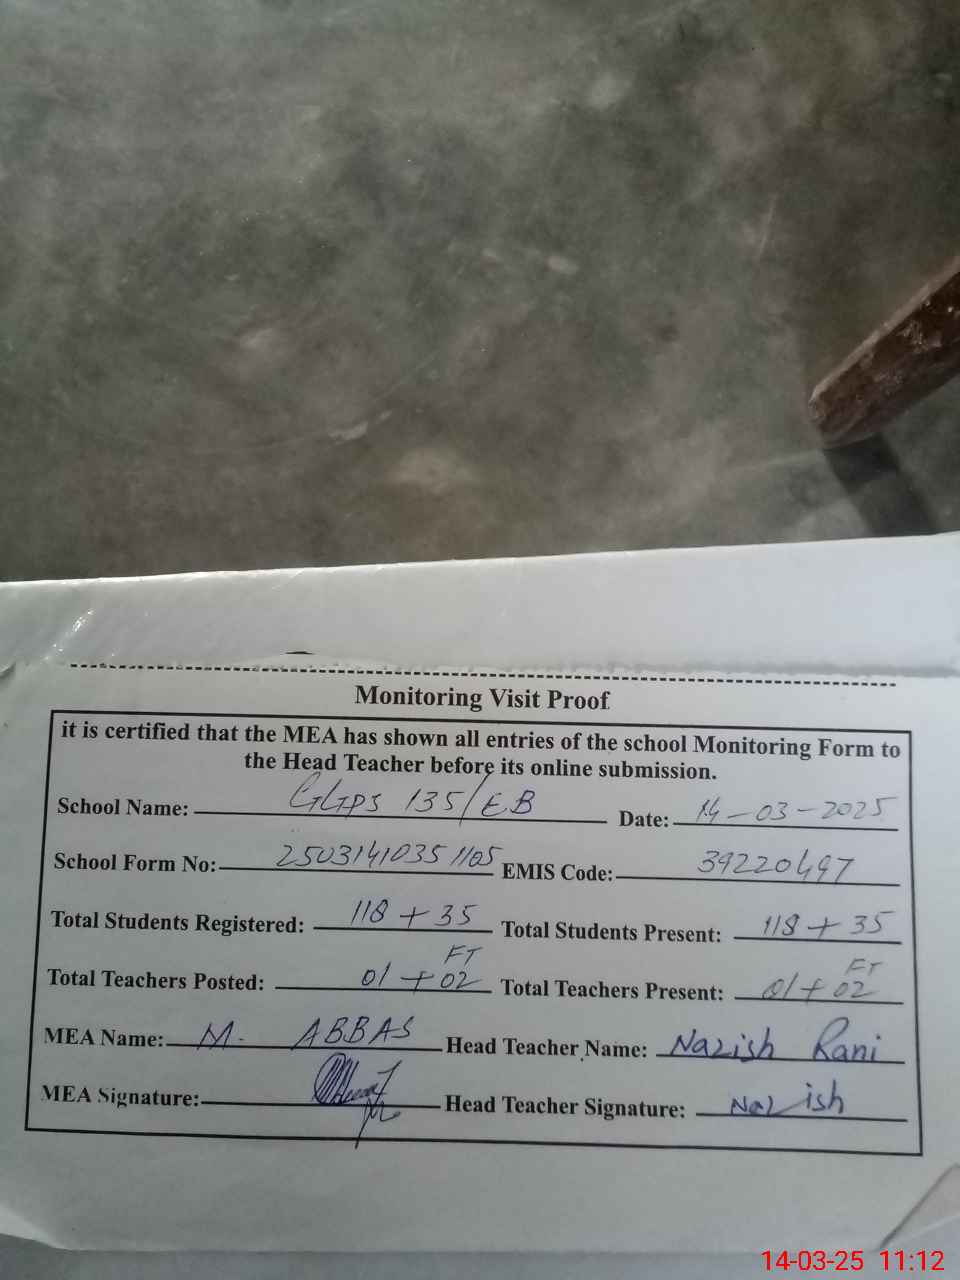 Monitoring Visit Proof
it is certified that the MEA has shown all entries of the school Monitoring Form to
the Head Teacher before its online submission.
School Name: GGPS 135/EB Date: 14-03-2025
School Form No: 25031410351105 EMIS Code: 39220497
Total Students Registered: 118 + 35 Total Students Present: 118 + 35
Total Teachers Posted: 01 + 02 FT Total Teachers Present: 01 + 02 FT
MEA Name: M. ABBAS Head Teacher Name: Nazish Rani
MEA Signature: Head Teacher Signature: Nazish
14-03-25 11:12